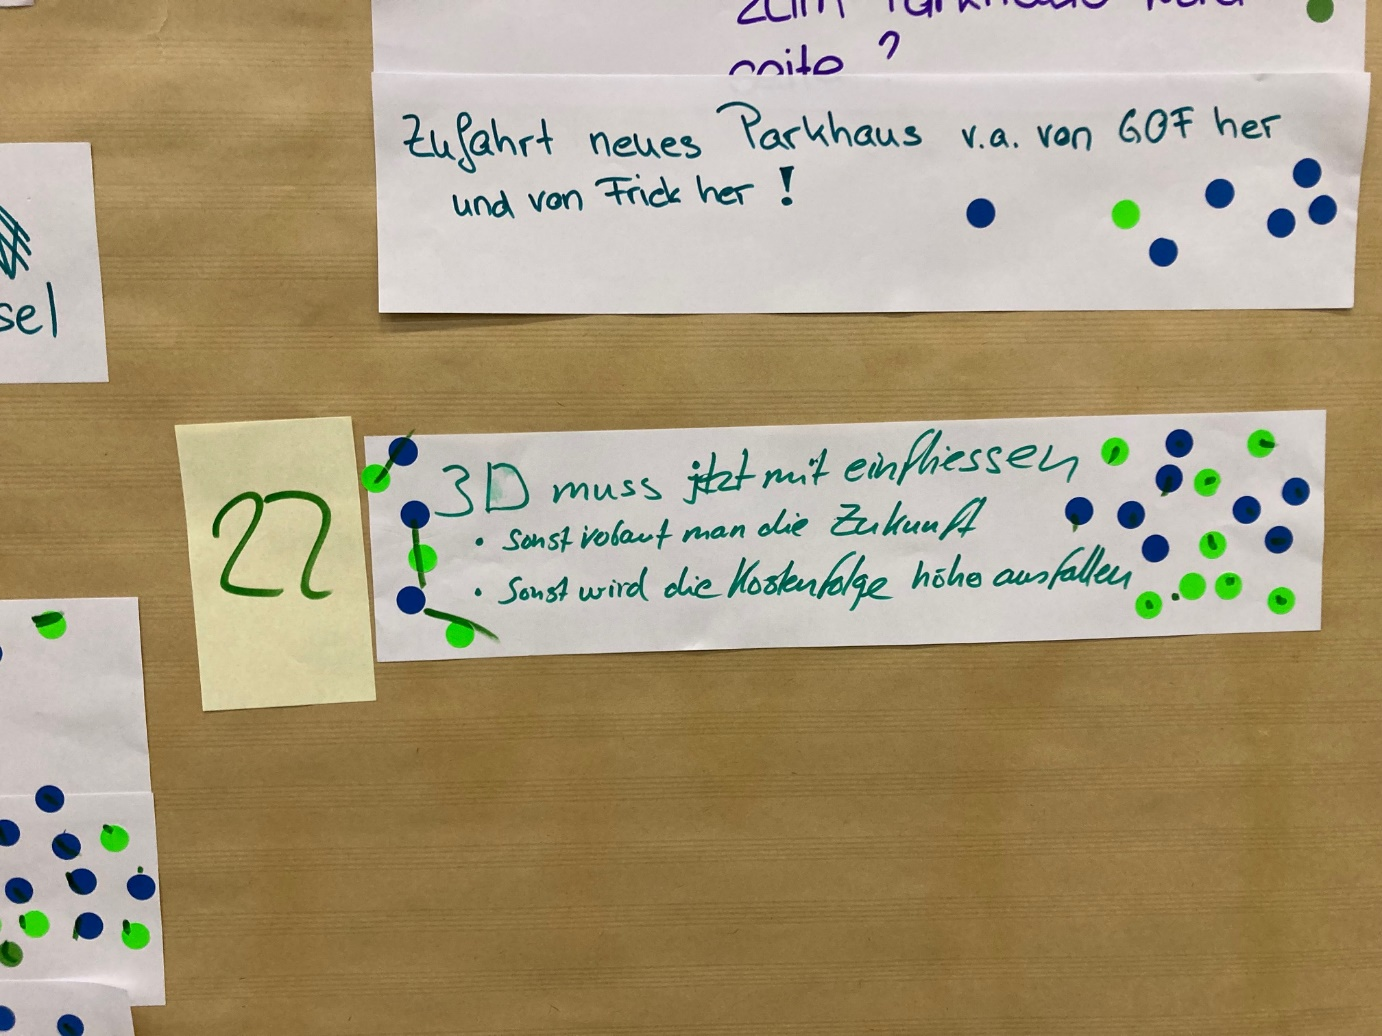 zum Parkhaus
seite ?
Zufahrt neues Parkhaus v.a. von GOF her
und von Frick her !
sel
22
3D muss jetzt mit einfliessen
• sonst verbaut man die Zukunft
• Sonst wird die Kostenfolge höhe ausfallen